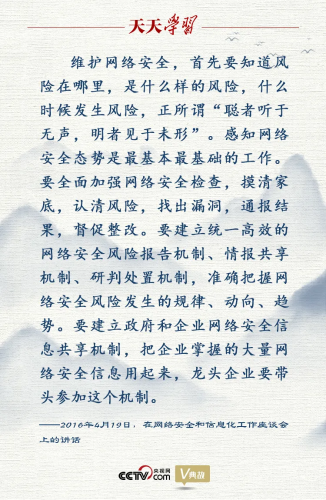 天天学習
维护网络安全，首先要知道风
险在哪里，是什么样的风险，什么
时候发生风险，正所谓“聪者听于
无声，明者见于未形”。感知网络
安全态势是最基本最基础的工作。
要全面加强网络安全检查，摸清家
底，认清风险，找出漏洞，通报结
果，督促整改。要建立统一高效的
网络安全风险报告机制、情报共享
机制、研判处置机制，准确把握网
络安全风险发生的规律、动向、趋
势。要建立政府和企业网络安全信
息共享机制，把企业掌握的大量网
络安全信息用起来，龙头企业要带
头参加这个机制。
——2016年4月19日，在网络安全和信息化工作座谈会
上的讲话
CCTV 央视网 com
V 画报